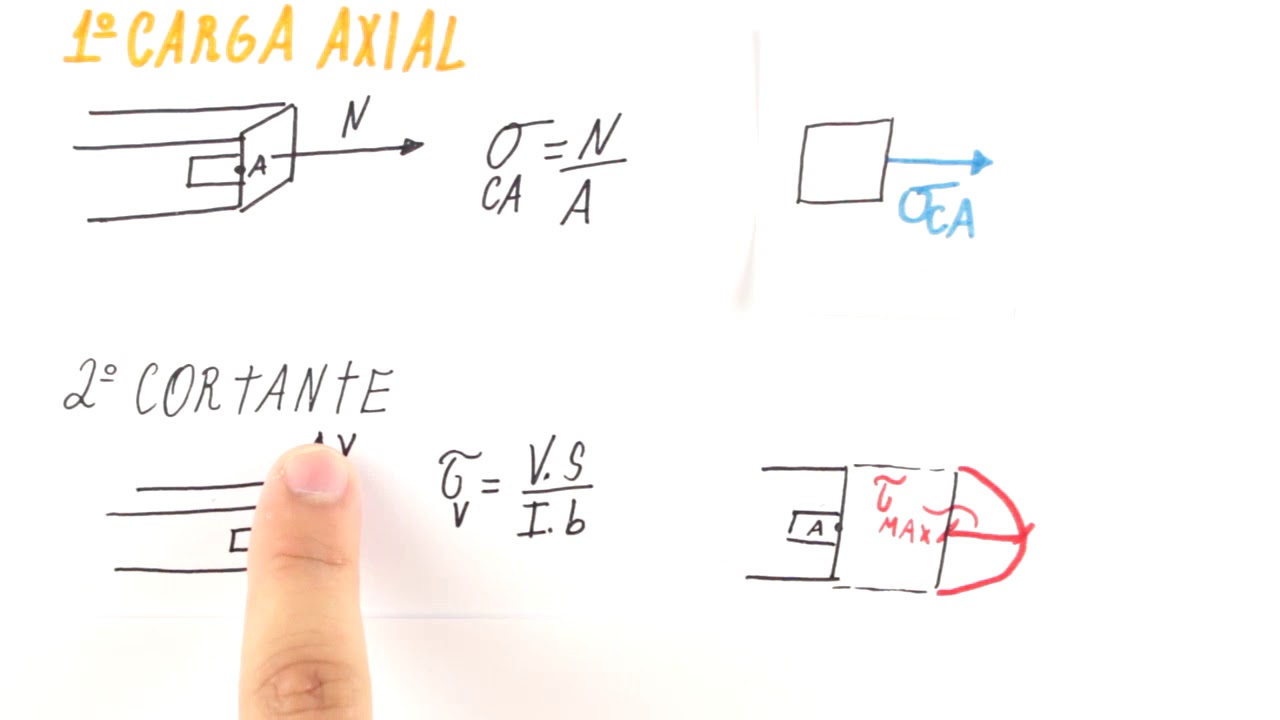 1º CARGA AXIAL
N
A
σ = N
CA A
σCA
2º CORTANTE
V
τ = V.S
V I.b
A
τ
MAX